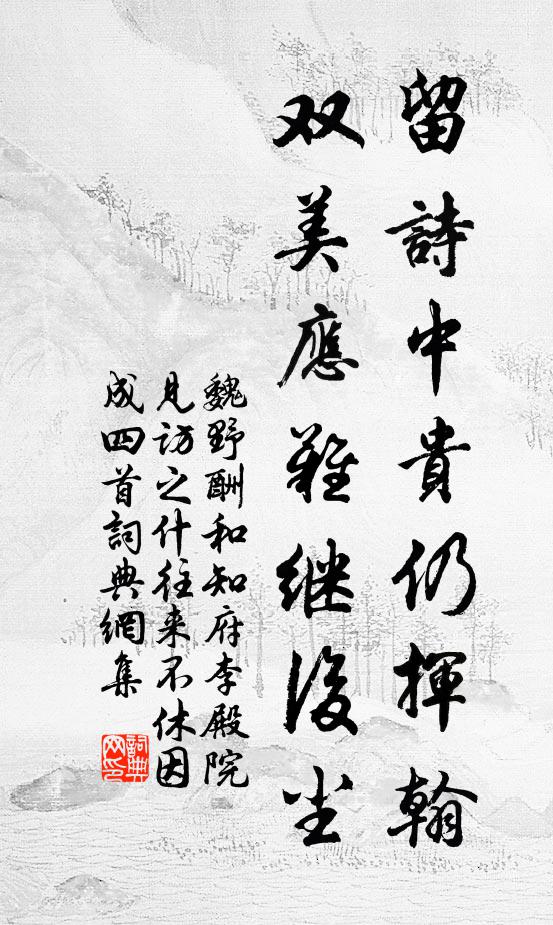 留詩中貴仍揮翰
双美應難继後尘
魏野酬和知府李殿院
見訪之什往来不休因
成四首詞典網集
詞典网印